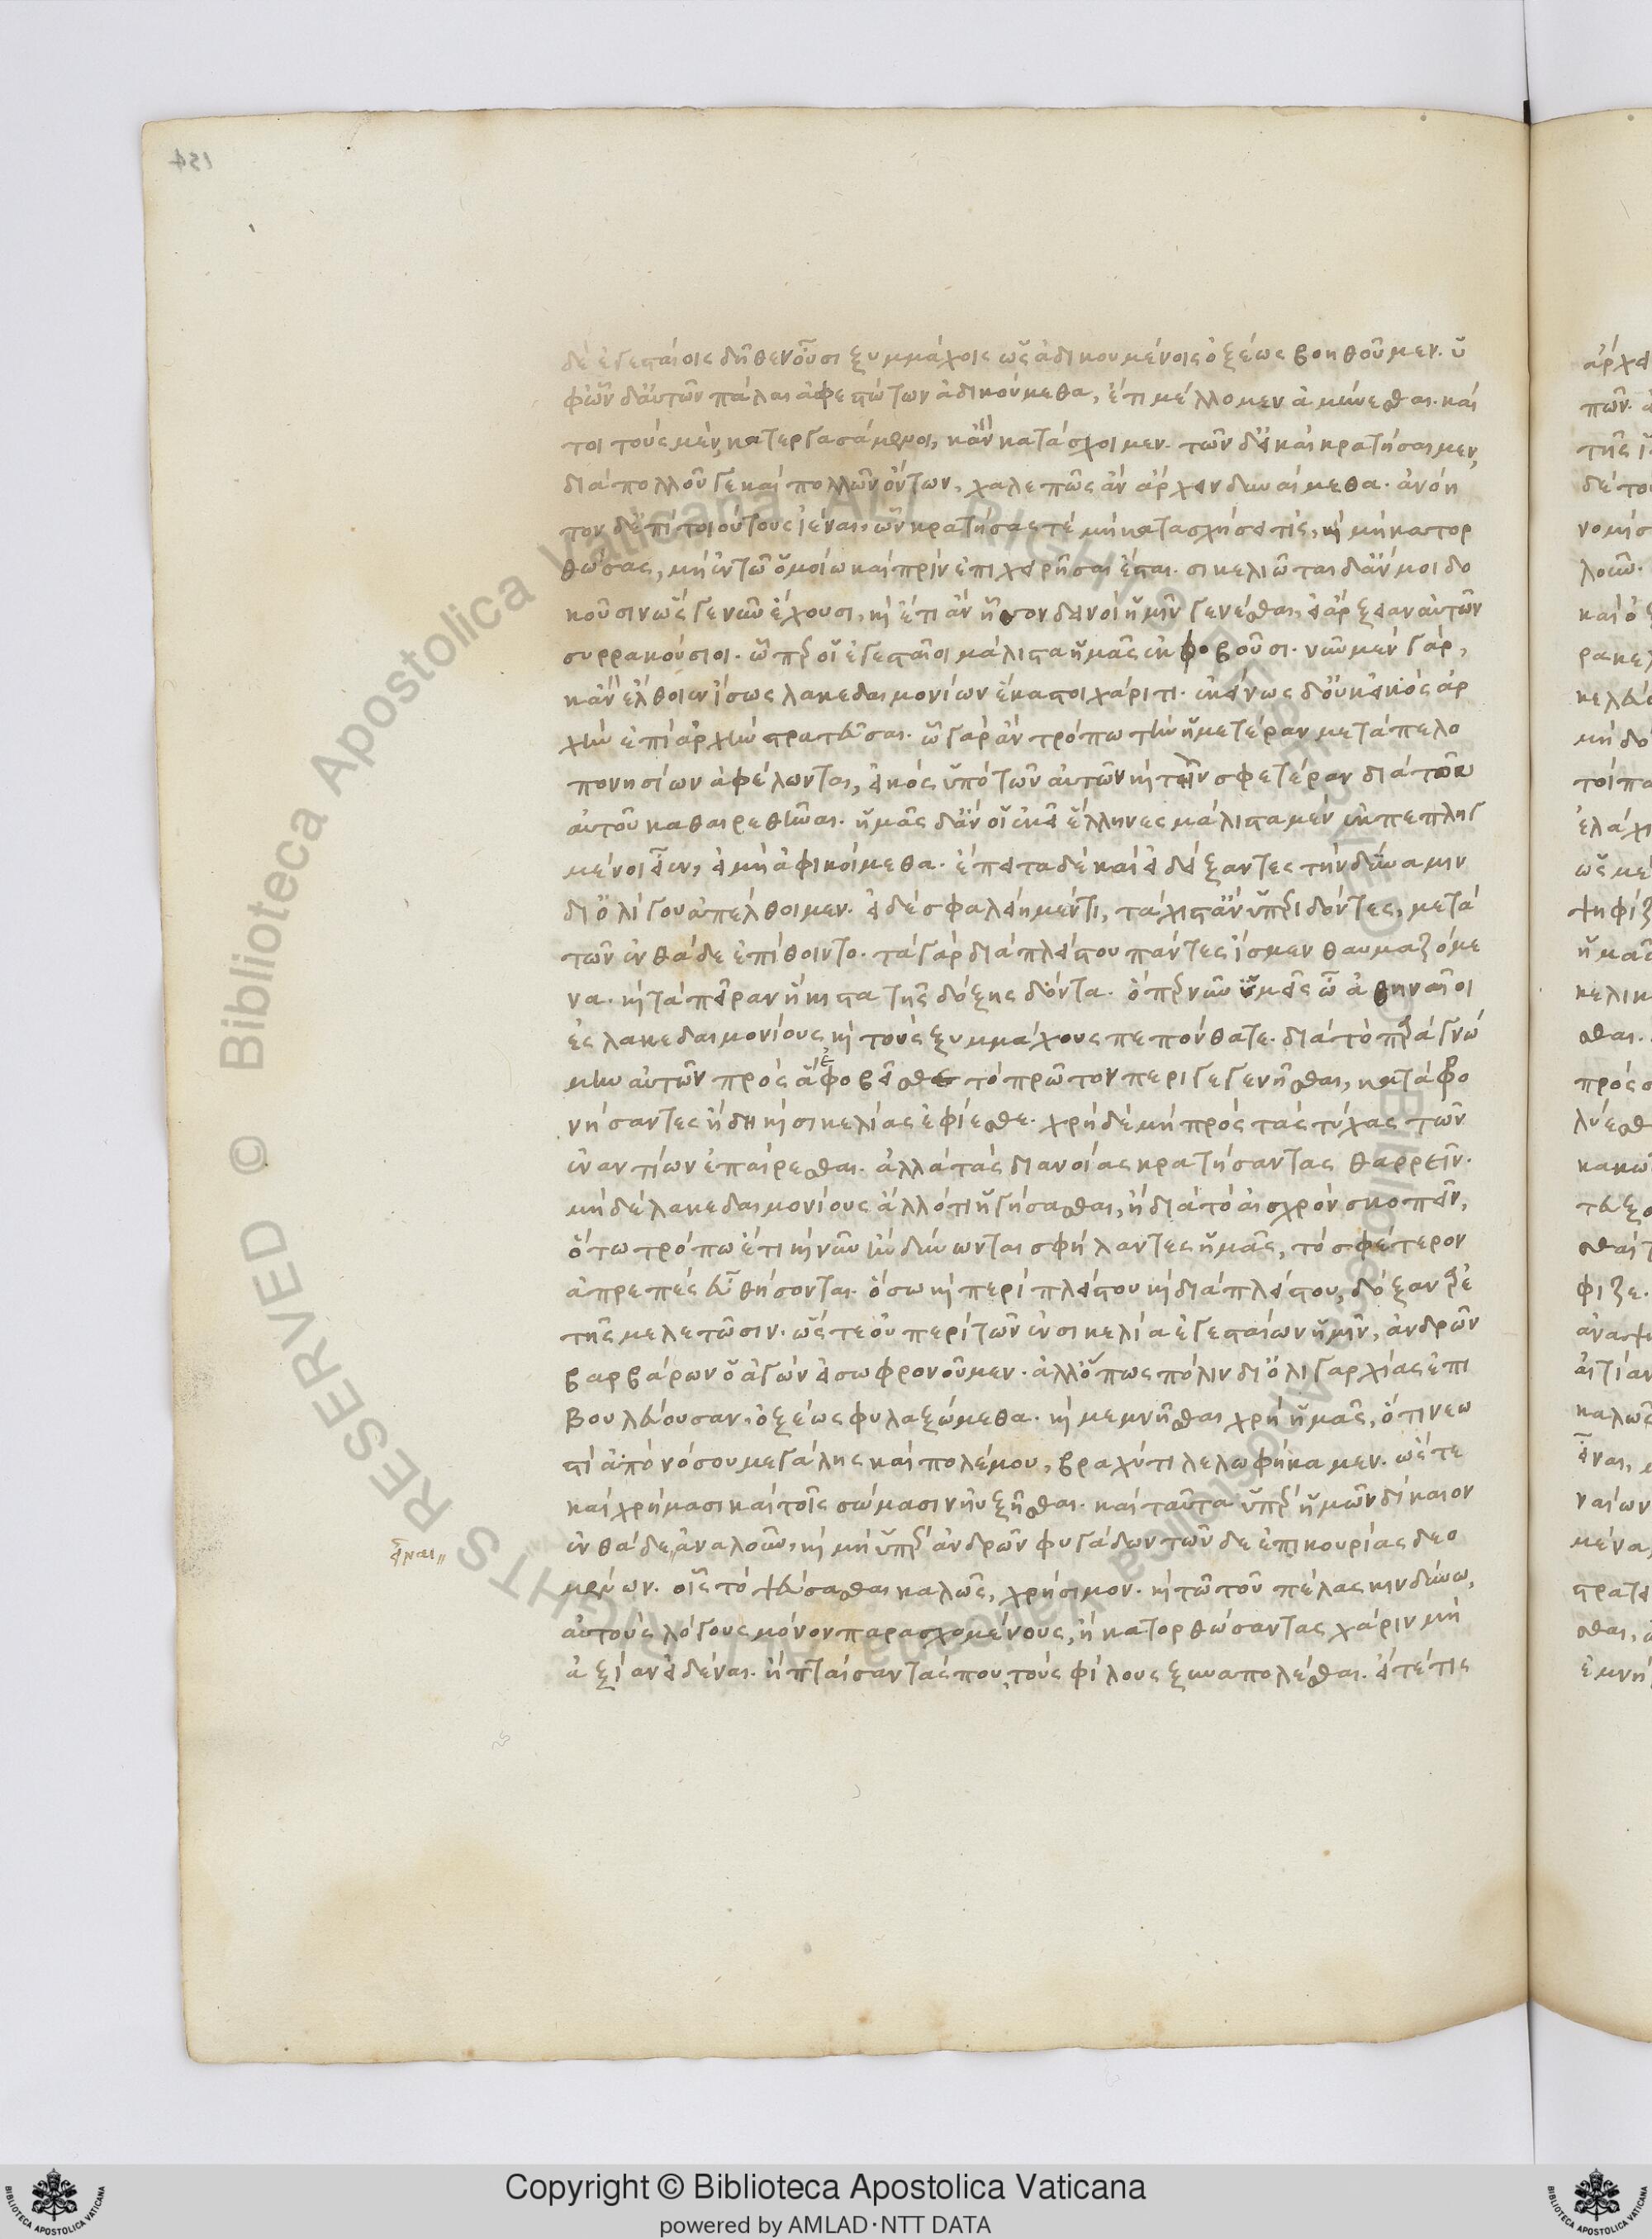 δὲ ἐγεσταίοις δὴ θεν οὖσι ξυμμάχοις ὡς ἀδικουμένοις ὀξέως βοηθοῦμεν. ὑ
φ' ὧν δ' αὐτῶν πάλαι ἀφεστώτων ἀδικούμεθα, ἔτι μέλλομεν ἀμύνεσθαι. καί
τοι τοὺς μὲν, κατεργασάμενοι, κἂν κατάσχοιμεν. τῶν δ' εἰ καὶ κρατήσαιμεν,
διὰ πολλοῦ γε καὶ πολλῶν ὄντων, χαλεπῶς ἂν ἄρχειν δυναίμεθα. ἀνόη
τον δ' ἐπὶ τοιούτους ἰέναι, ὧν κρατήσας τὲ μὴ κατασχήσει τίς, καὶ μὴ κατορ
θώσας, μὴ ἐν τῶ ὁμοίω καὶ πρὶν ἐπιχειρῆσαι ἔσται. σικελιῶται δ' ἄν μοι δο
κοῦσιν ὥς γε νῦν ἔχουσι, καὶ ἔτι ἂν ἧσσον δεινοὶ ἡμῖν γενέσθαι, εἰ ἄρξειαν αὐτῶν
συρρακούσιοι. ὧπερ οἱ ἐγεσταῖοι μάλιστα ἡμᾶς ἐκφοβοῦσι. νῦν μὲν γάρ,
κἂν ἔλθοιεν ἴσως λακεδαιμονίων ἕκαστοι χάριτι. ἐκείνως δ' οὐκ εἰκὸς ἀρ
χὴν ἐπὶ ἀρχὴν στρατεῦσαι. ὧ γὰρ ἂν τρόπω τὴν ἡμετέραν μετὰ πελο
πονησίων ἀφέλωνται, εἰκὸς ὑπὸ τῶν αὐτῶν καὶ τὴν σφετέραν διὰ τοῦ
αὐτοῦ καθαιρεθῆναι. ἡμᾶς δ' ἂν οἱ ἐκεῖ ἕλληνες μάλιστα μὲν ἐκπεπληγ
μένοι εἶεν, εἰ μὴ ἀφικοίμεθα. ἔπειτα δὲ καὶ εἰ δείξαντες τὴν δύναμιν
δι' ὀλίγου ἀπέλθοιμεν. εἰ δὲ σφαλείημέν τι, τάχιστ' ἂν ὑπεριδόντες, μετὰ
τῶν ἐνθάδε ἐπίθοιντο. τὰ γὰρ διὰ πλείστου πάντες ἴσμεν θαυμαζόμε
να. καὶ τὰ πεῖραν ἥκιστα τῆς δόξης δόντα. ὅπερ νῦν ὑμεῖς ὦ ἀθηναῖοι
ἐς λακεδαιμονίους καὶ τοὺς ξυμμάχους πεπόνθατε. διὰ τὸ παρὰ γνώ
μην αὐτῶν πρὸς ἃ ἐφοβεῖσθε τὸ πρῶτον περιγεγενῆσθαι, καταφρο
νήσαντες ἤδη καὶ σικελίας ἐφίεσθε. χρὴ δὲ μὴ πρὸς τὰς τύχας τῶν
ἐναντίων ἐπαίρεσθαι. ἀλλὰ τὰς διανοίας κρατήσαντας θαρρεῖν.
μὴ δὲ λακεδαιμονίους ἄλλό τι ἡγήσασθαι, ἢ διὰ τὸ αἰσχρὸν σκοπεῖν,
ὅτω τρόπω ἔτι καὶ νῦν ἢν δύνωνται σφήλαντες ἡμᾶς, τὸ σφέτερον
ἀπρεπὲς εὖ θήσονται. ὅσω καὶ περὶ πλείστου καὶ διὰ πλείστου, δόξαν ἀρε
τῆς μελετῶσιν. ὥστε οὐ περὶ τῶν ἐν σικελία ἐγεσταίων ἡμῖν, ἀνδρῶν
βαρβάρων ὁ ἀγὼν εἰ σωφρονοῦμεν. ἀλλ' ὅπως πόλιν δι' ὀλιγαρχίας ἐπι
βουλεύουσαν, ὀξέως φυλαξώμεθα. καὶ μεμνῆσθαι χρὴ ἡμᾶς, ὅτι νεω
στὶ ἀπὸ νόσου μεγάλης καὶ πολέμου, βραχύ τι λελωφήκαμεν. ὥστε
καὶ χρήμασι καὶ τοῖς σώμασιν ηὐξῆσθαι. καὶ ταῦτα ὑπὲρ ἡμῶν δίκαιον
εἶναι
ἐνθάδε ἀναλοῦν, καὶ μὴ ὑπὲρ ἀνδρῶν φυγάδων τῶν δε ἐπικουρίας δεο
μένων. οἷς τὸ ψεύσασθαι καλῶς, χρήσιμον. καὶ τῶ τοῦ πέλας κινδύνω,
αὐτοὺς λόγους μόνον παρασχομένους, ἢ κατορθώσαντας χάριν μὴ
ἀξίαν εἰδέναι. ἢ πταίσαντάς που, τοὺς φίλους ξυναπολέσθαι. εἴ τέ τις
Copyright © Biblioteca Apostolica Vaticana
powered by AMLAD·NTT DATA